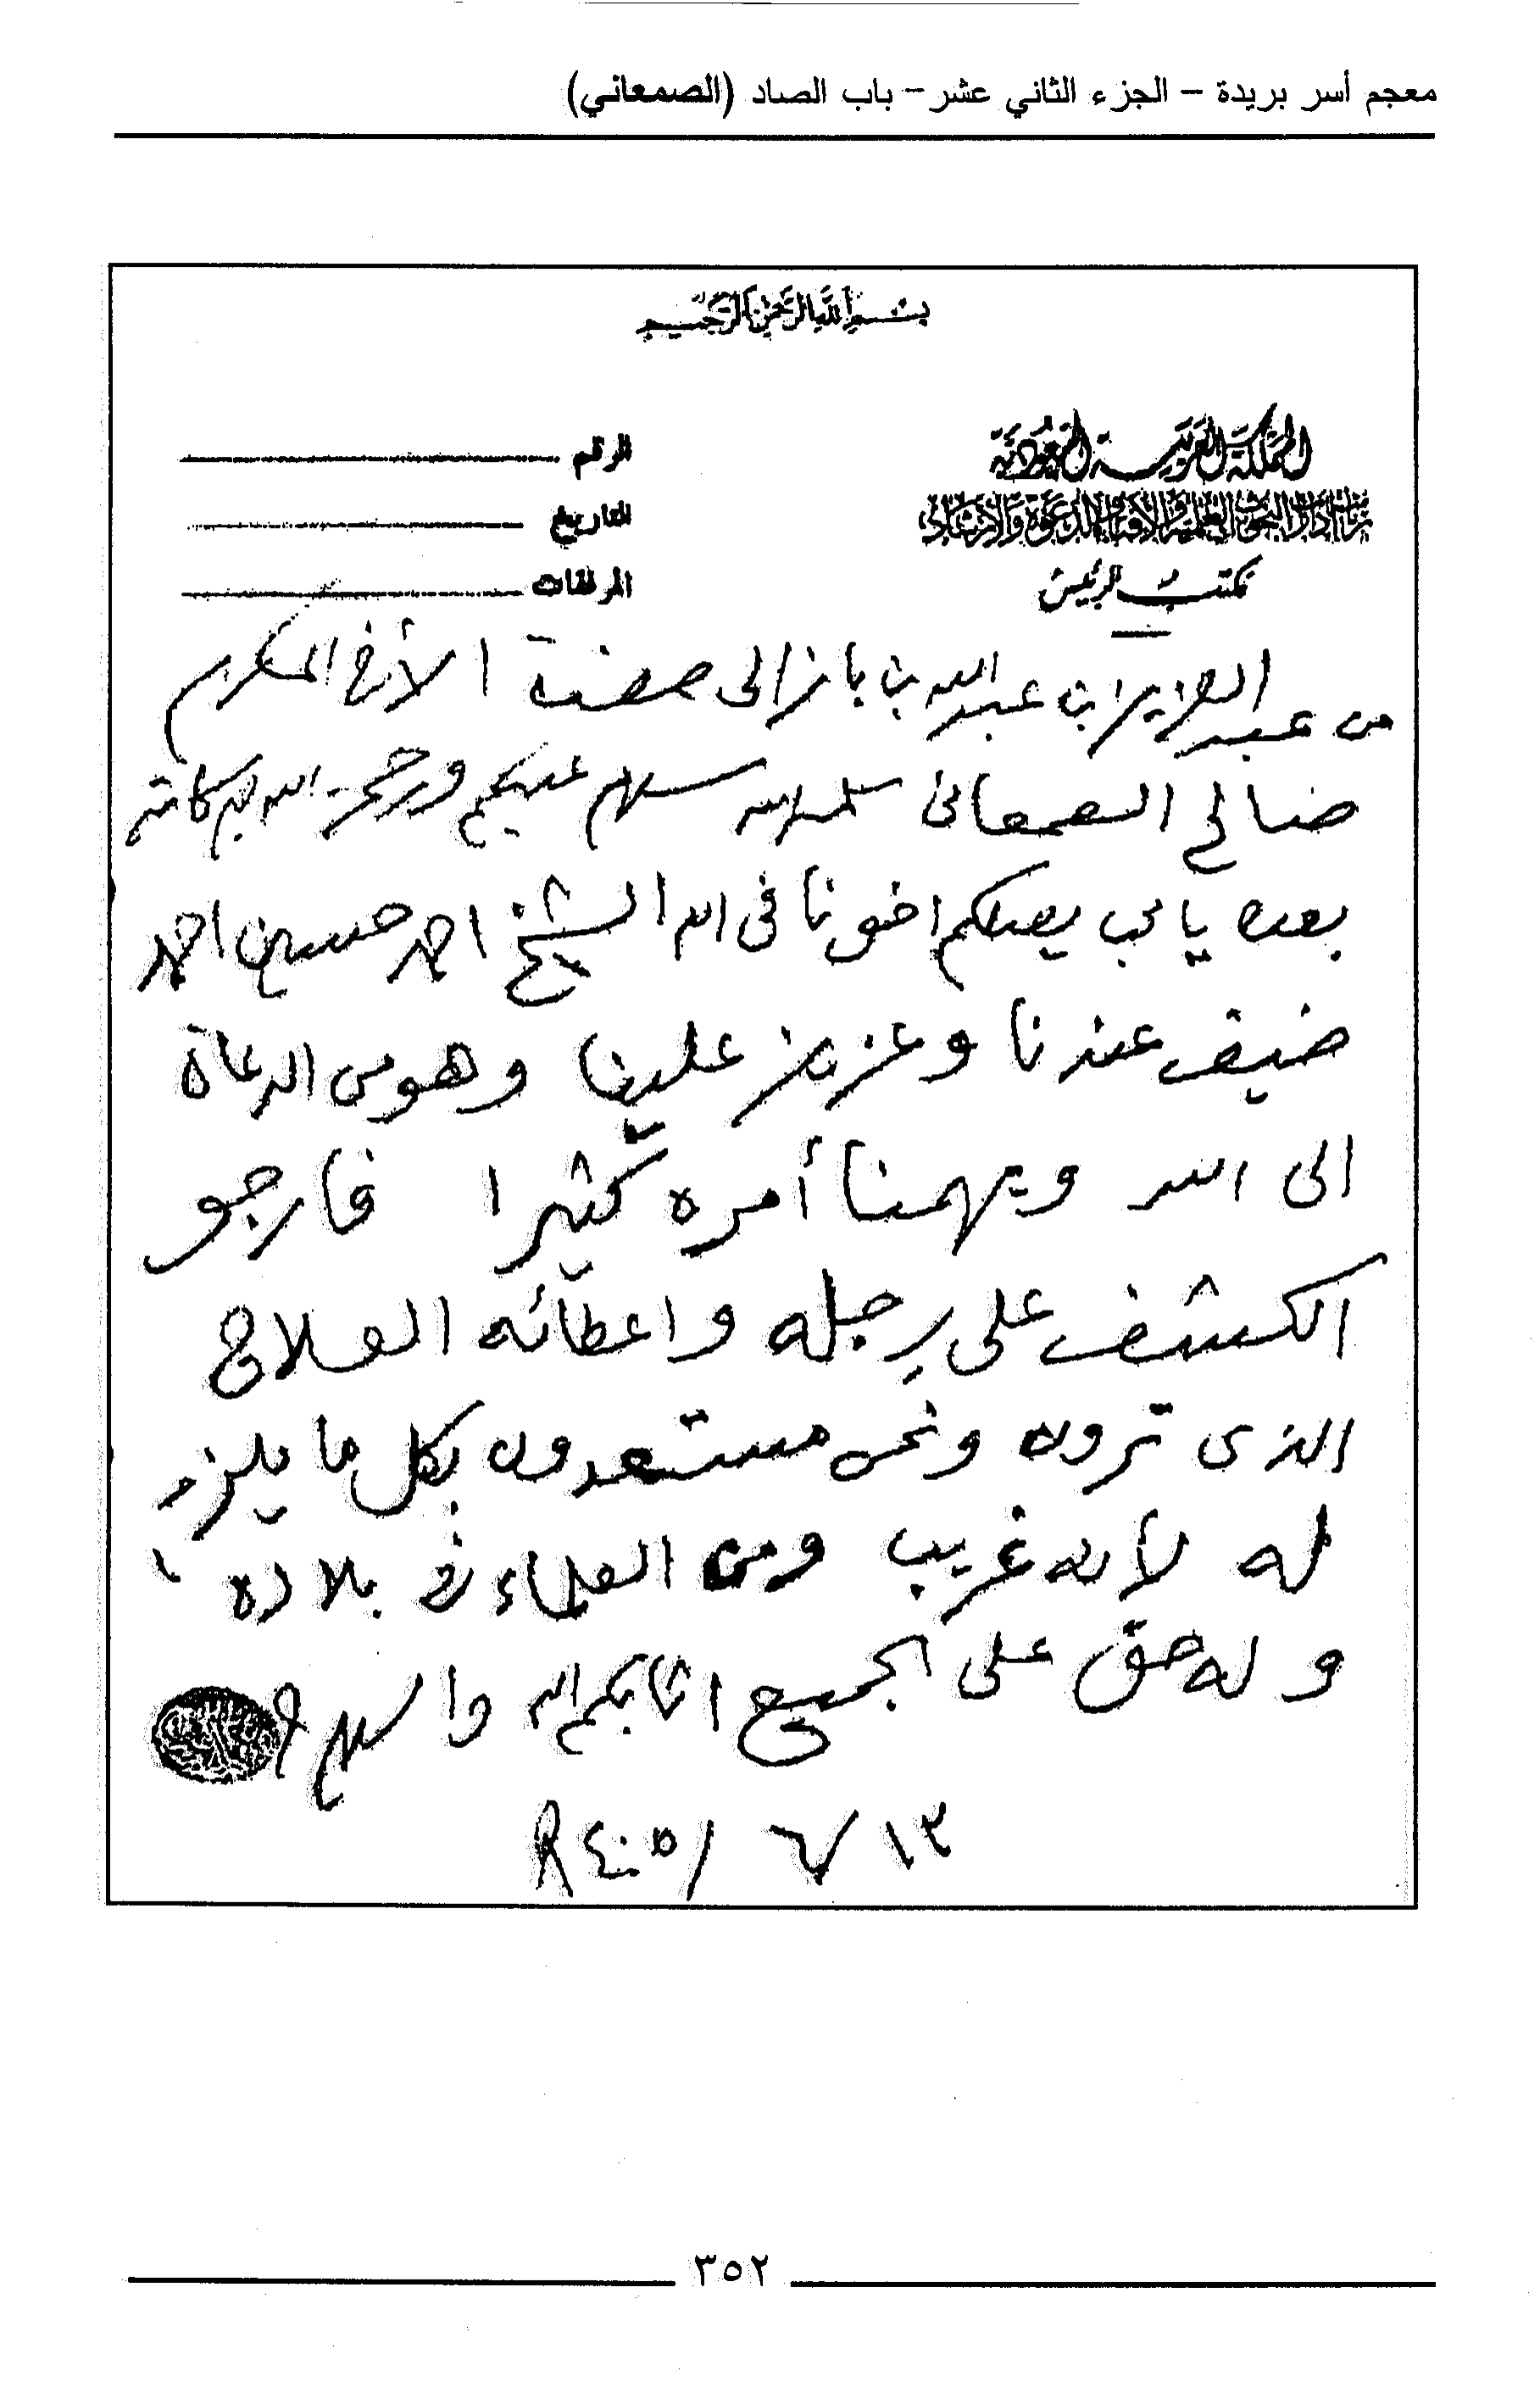 معجم أسر بريدة – الجزء الثاني عشر – باب الصاد (الصمعاني)
بسم الله الرحمن الرحيم
المملكة العربية السعودية
الرقم
رئاسة إدارات البحوث العلمية والافتاء والدعوة والارشاد
التاريخ
مكتب الرئيس
المرفقات
من عبد العزيز بن عبد الله بن باز الى حضرة الأخ المكرم
صالح الصمعانى سلمه الله سلام عليكم ورحمة الله وبركاته
بعده يا محب يصلكم اخونا فى الله الشيخ احمد حسين احمد
ضيف عندنا وعزيز علينا وهو من الدعاة
الى الله ويهمنا أمره كثيرا فارجو
الكشف على رجله واعطائه العلاج
الذى ترون ونحن مستعدون بكل ما يلزم
له لأنه غريب ومن العلماء فى بلاده
وله حق على الجميع اثابكم الله والسلام
١٣/٦/٤٠٥
٣٥٢